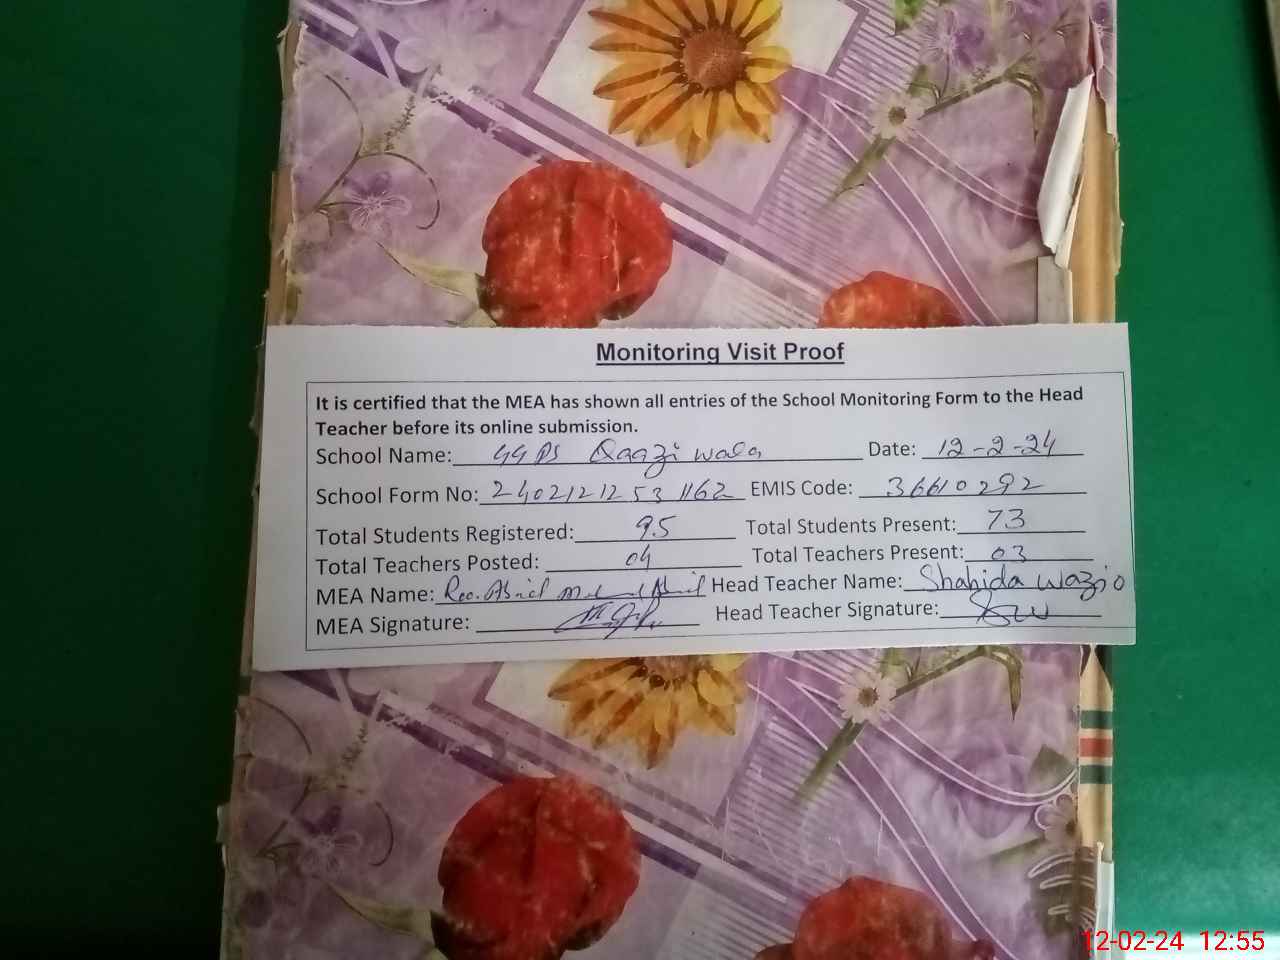 Monitoring Visit Proof
It is certified that the MEA has shown all entries of the School Monitoring Form to the Head
Teacher before its online submission.
School Name: GGPS Qaazi wala Date: 12-2-24
School Form No: 2402121253 1162 EMIS Code: 36610292
Total Students Registered: 95 Total Students Present: 73
Total Teachers Posted: 04 Total Teachers Present: 03
MEA Name: Head Teacher Name: Shahida Wazir
MEA Signature: Head Teacher Signature:
12-02-24 12:55